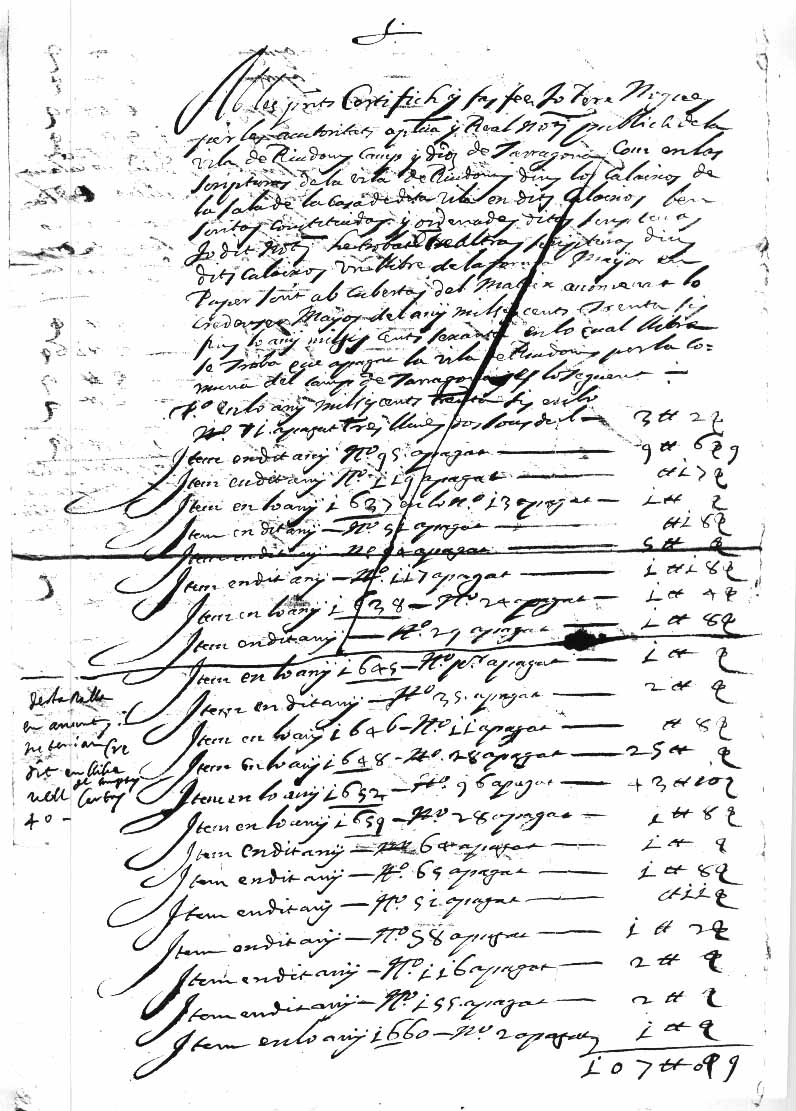 Ab les pnts Certifich y fas fee Jo Pere
per les autoritats aplica y Real Nott publich de la
vila de Riudoms Camp y Dios de Tarragona Com en las
scripturas de la vila de Riudoms dins lo Calaixos de
la sala de la Casa de dita vila en dits Calaixos ben
juntas Constituidas y ordenades ditas scripturas
Jo dit Nott he trobat entre altras scripturas dins
dits Calaixos un llibre de la forma Major de
Paper Junt ab Cubertas del Mateix anomenat lo
Major del any mil sis cents Trenta sis
fins lo any mil sis Cents sexanta en lo qual llibre
se troba que a pagat la vila de Riudoms per la Co-
muna del camp de Tarragona lo seguent :-
P.o en lo any mil sis cents trenta sis en lo
No. 71 a pagat tres lliures dos sous dich — 3 ₶ 2 ẜ
Item en dit any No. 95 a pagat — 9 ₶ 6 ẜ 9
Item en dit any No. 119 a pagat — ₶ 17 ẜ
Item en lo any 1637 en lo No. 13 a pagat — 1 ₶ ẜ
Item en dit any — No. 51 a pagat — ₶ 18 ẜ
Item en dit any — No. 94 a pagat — 5 ₶ ẜ
Item en dit any — No. 117 a pagat — 1 ₶ 18 ẜ
Item en lo any 1638 — No. 24 a pagat — 1 ₶ 4 ẜ
Item en dit any — No. 27 a pagat — 1 ₶ 8 ẜ
Item en lo any 1645 — No. pr. a pagat — 1 ₶ ẜ
Item en dit any — No. 35 a pagat — 2 ₶ ẜ
Item en lo any 1646 — No. 11 a pagat — ₶ 8 ẜ
Item en lo any 1648 — No. 28 a pagat — 25 ₶ ẜ
Item en lo any 1652 — No. 96 a pagat — 43 ₶ 10 ẜ
Item en lo any 1659 — No. 28 a pagat — 1 ₶ 8 ẜ
Item en dit any — No. 64 a pagat — 1 ₶ ẜ
Item en dit any — No. 65 a pagat — 1 ₶ 8 ẜ
Item en dit any — No. 51 a pagat — ₶ 11 ẜ
Item en dit any — No. 58 a pagat — 1 ₶ 2 ẜ
Item en dit any — No. 116 a pagat — 2 ₶ ẜ
Item en dit any — No. 155 a pagat — 2 ₶ ẜ
Item en lo any 1660 — No. 2 a pagat — 1 ₶ ẜ
107 ₶ 0 ẜ 9
desta Ralla
en amunt
no tenian Cre
dit en llibre
vell
40 -